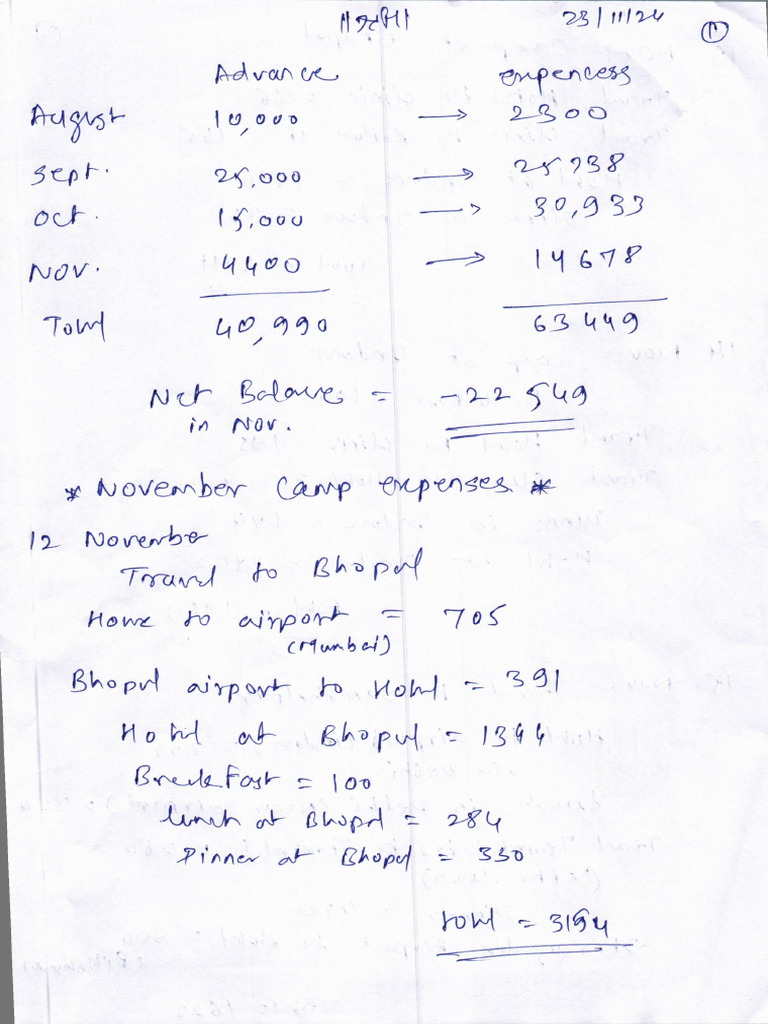 ॥श्री॥ 23/11/24 1
Advance expencess
August 10,000 → 2300
Sept. 25,000 → 25738
Oct. 15,000 → 30,933
Nov. 4400 → 14678
Total 40,990 63449
Net Balance = -22549
in Nov.
* November Camp expenses *
12 November
Travel to Bhopal
Home to airport = 705
(Mumbai)
Bhopal airport to Hotel = 391
Hotel at Bhopal = 1344
Breakfast = 100
lunch at Bhopal = 284
Dinner at Bhopal = 330
total = 3154